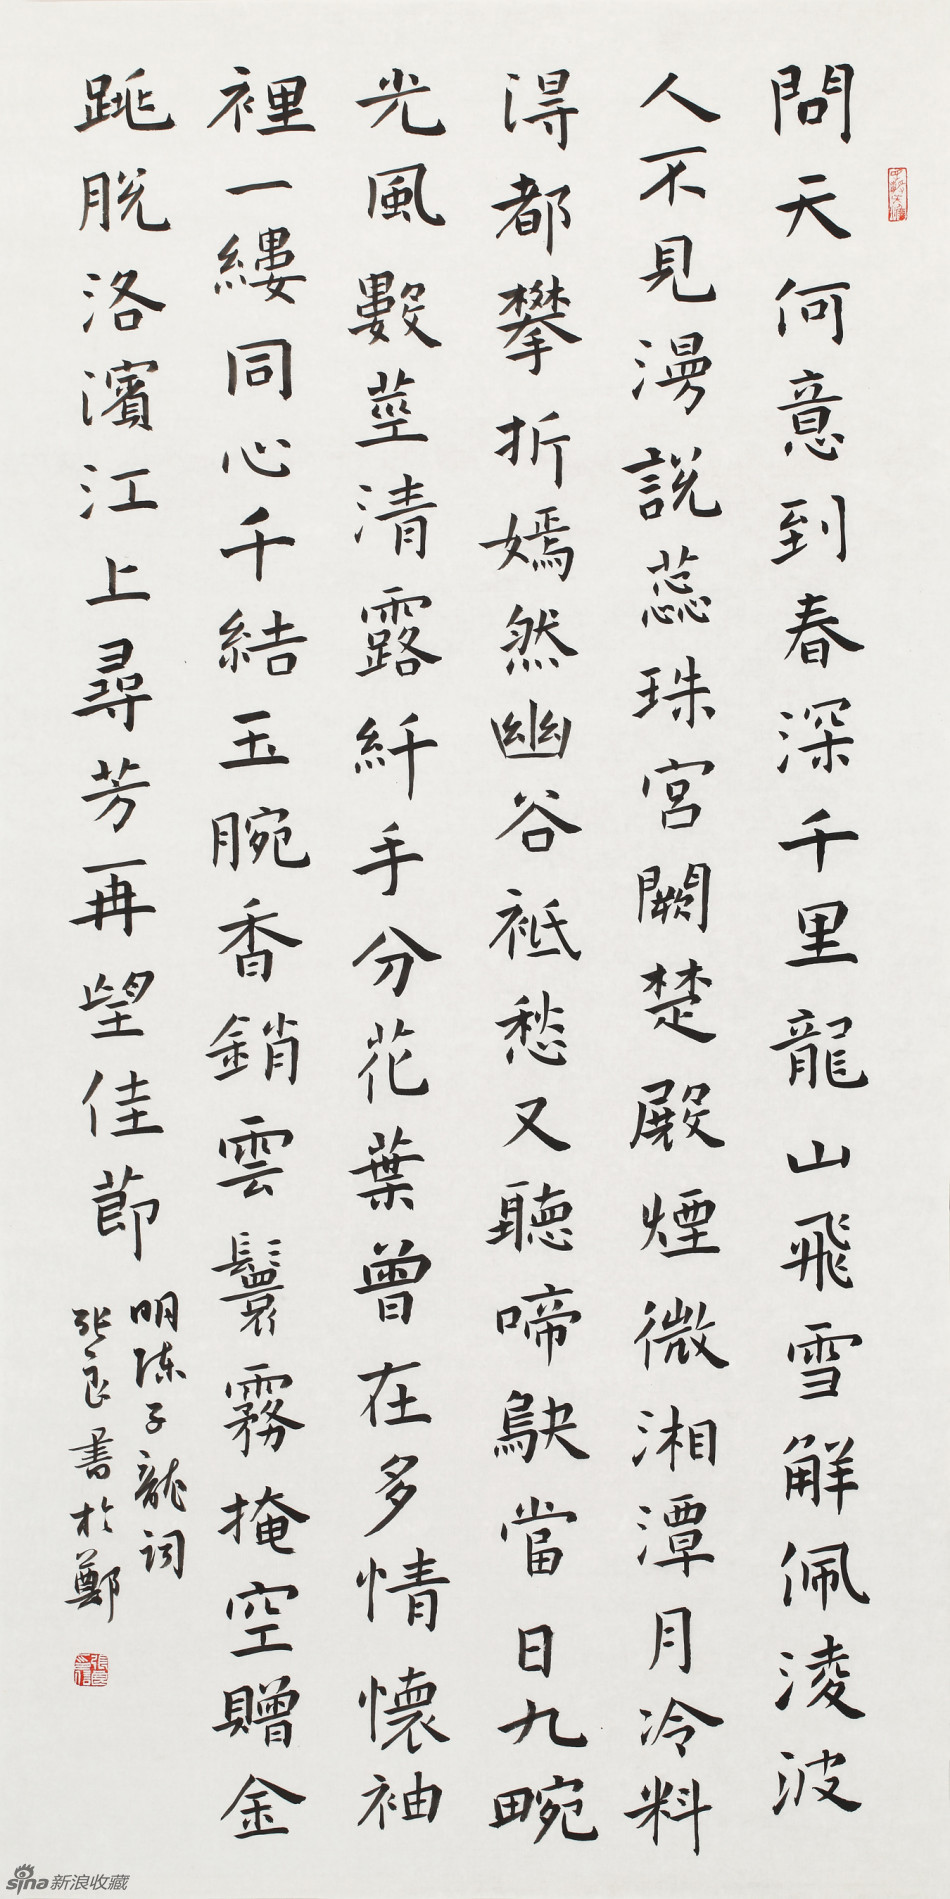 問天何意到春深千里龍山飛雪解佩淩波
人不見漫説蕊珠宮闕楚殿煙微湘潭月冷料
得都攀折嫣然幽谷祗愁又聽啼鴃當日九畹
光風數莖清露纤手分花葉曾在多情懷袖
裡一縷同心千結玉腕香銷雲鬟霧掩空贈金
跳脱洛濱江上尋芳再望佳節
明陳子龍詞
張良書於鄭
sina新浪收藏